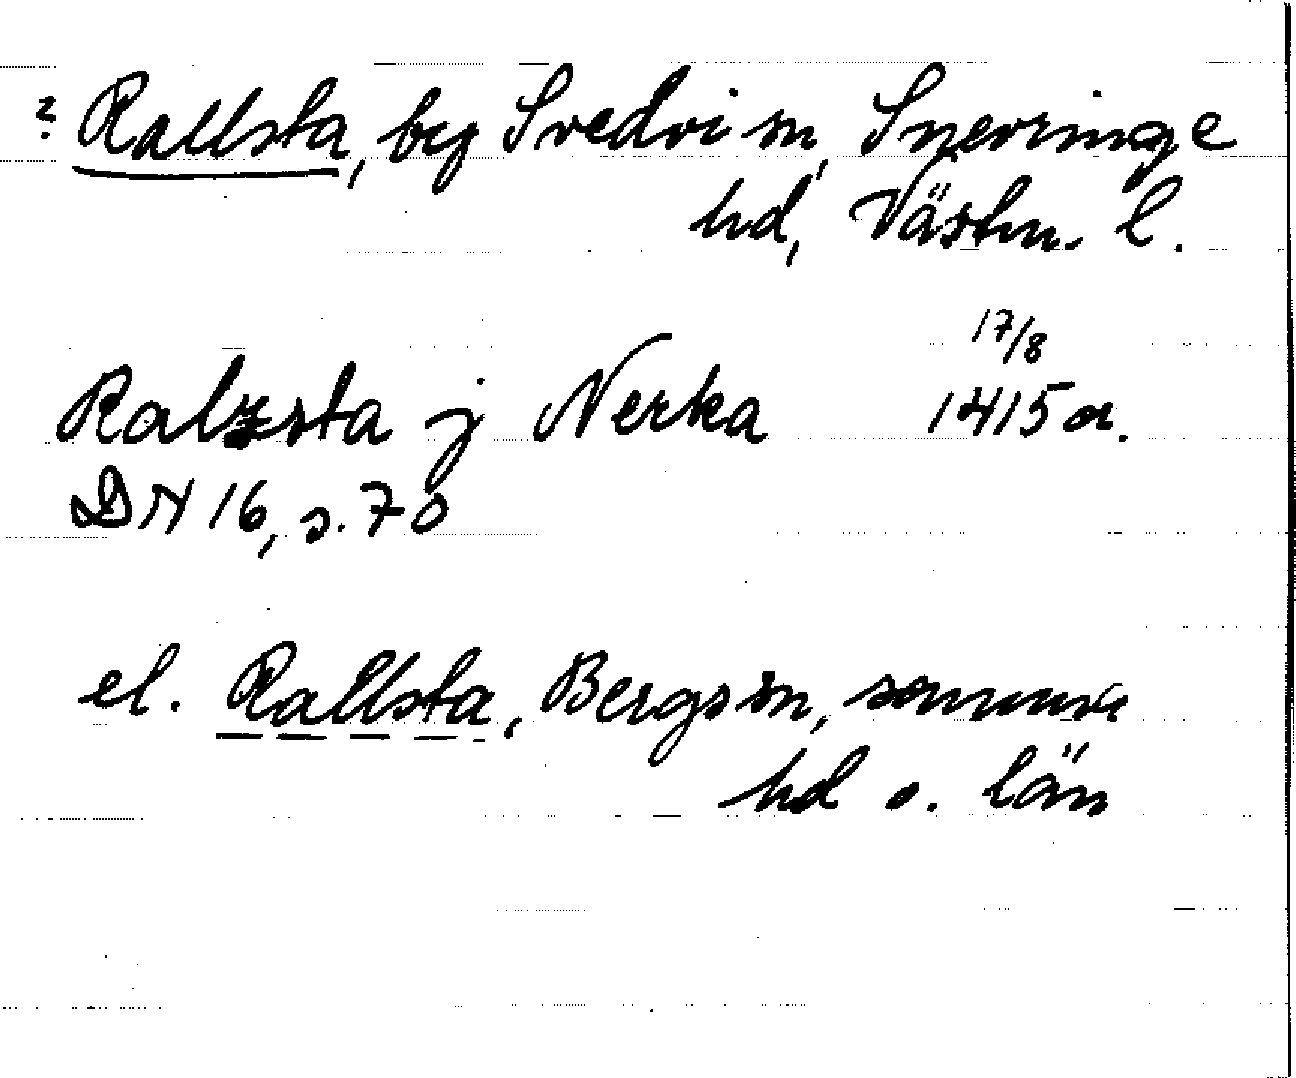 ? Rallsta, by Svedvi sn, Snevringe
hd, Västm. l.
17/8
Ralzsta j Nerka 1415 or.
DN 16, s. 70
el. Rallsta, Bergs sn, samma
hd o. län